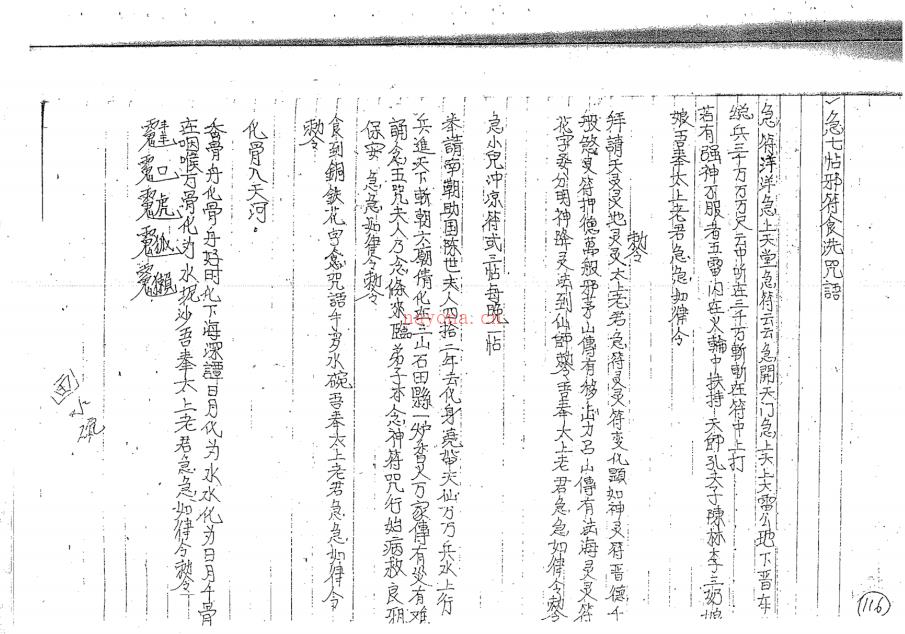 急七帖邪符食洗咒語
急符洋洋急上天堂急符云云急開天门急上天上大雷公地下晋车
兵三千万万万尺云中听在三千万斬斬在符中上打
若有强神不服者五雷内在火輪中扶持天師孔夫子陳林李三奶娘
娘吾奉太上老君急急如律令
勅
拜請天灵灵地灵灵太上老君急符灵灵符变化顕如神灵符晋德千
般慾灵符押德萬般邪茅山傳有移山力吕山傳有法海灵灵符
花字委分明神降灵法到仙師勅令吾奉太上老君急急如律令勅
急小兒沖凉符或三帖每晚一帖
奉請南朝助国陈世夫人四拾二年去化身蕘帶天仙万万兵水上行
兵進天下斬朝六朝倩化三山石田縣一炉香火万家傳有災有难
誦念玉咒夫人乃念條來臨弟子本念神符咒行始病救良朋
保安急急如律令勅
食到銅鉄花字食咒語千勿水碗吾奉太上老君急急如律令
勅
化骨入天河。
香骨丹化骨丹好时化下海深譚日月化为水水化为日月千骨
在咽喉万骨化为水坭沙吾奉太上老君急急如律令勅令
画水碗
nayona.cn
116